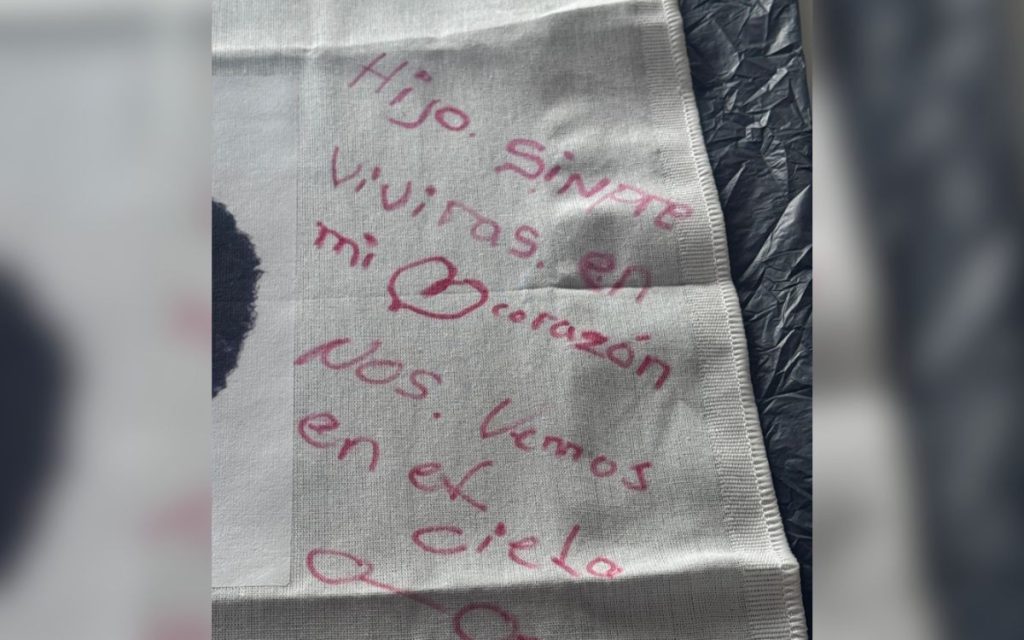 Hijo. Sinpre
Viviras. en
mi corazón
Nos. Vemos
en el
cielo